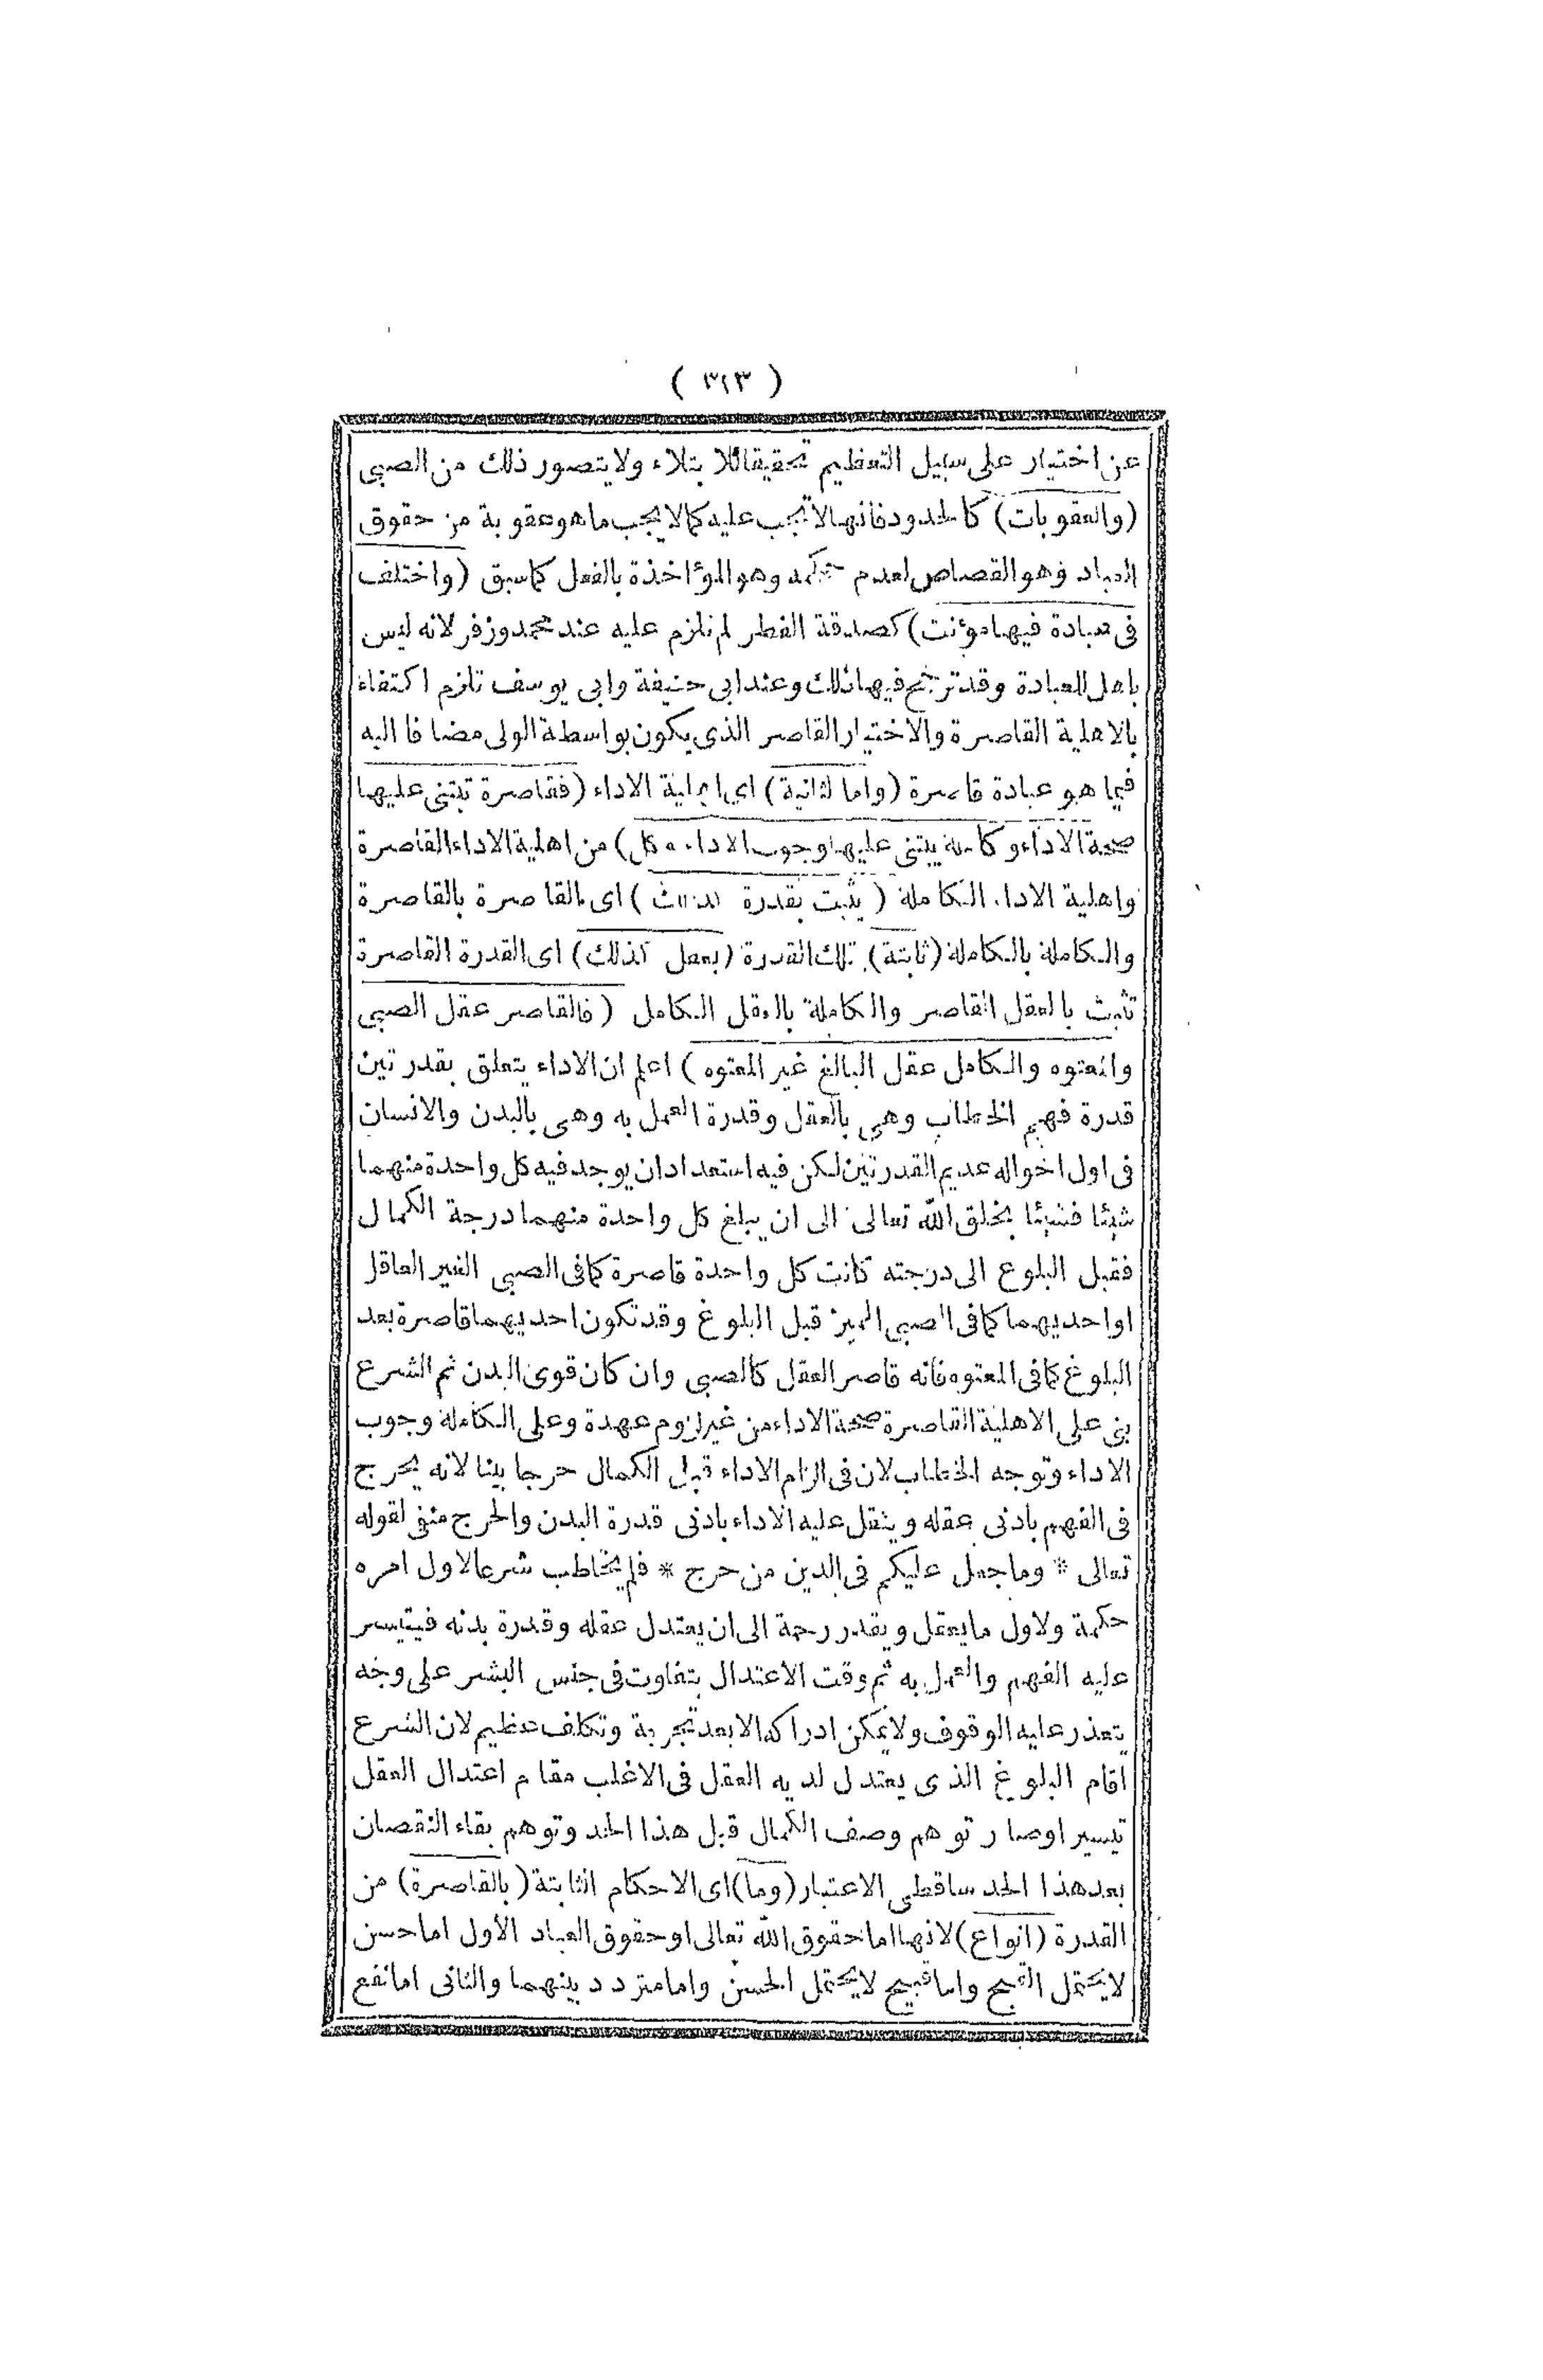 ( ٣٢٣ )
عن اختيار على سبيل التعظيم تحقيقا للا بتلاء ولا يتصور ذلك من الصبى
(والعقوبات) كالحدود فانها لا تجب عليه كما لا يجب ما هو عقوبة من حقوق
العباد وهو القصاص لعدم حكمه وهو المؤاخذة بالفعل كما سبق (واختلف
فى عبادة فيها مؤنت) كصدقة الفطر لم تلزم عليه عند محمد وزفر لانه ليس
باهل للعبادة وقد ترجح فيها ذلك وعند ابى حنيفة وابى يوسف تلزم اكتفاء
بالاهلية القاصرة والاختيار القاصر الذى يكون بواسطة الولى مضافا اليه
فيما هو عبادة قاصرة (واما الثانية) اى اهلية الاداء (فقاصرة تبتنى عليها
صحة الاداء وكاملة يبتنى عليها وجوب الاداء وكل) من اهلية الاداء القاصرة
واهلية الاداء الكاملة (يثبت بقدرة كذلك) اى القاصرة بالقاصرة
والكاملة بالكاملة (ثابتة) تلك القدرة (بعقل كذلك) اى القدرة القاصرة
تثبت بالعقل القاصر والكاملة بالعقل الكامل (فالقاصر عقل الصبى
والمعتوه والكامل عقل البالغ غير المعتوه) اعلم ان الاداء يتعلق بقدرتين
قدرة فهم الخطاب وهى بالعقل وقدرة العمل به وهى بالبدن والانسان
فى اول احواله عديم القدرتين لكن فيه استعداد ان يوجد فيه كل واحدة منهما
شيئا فشيئا بخلق الله تعالى الى ان يبلغ كل واحدة منهما درجة الكمال
فقبل البلوغ الى درجته كانت كل واحدة قاصرة كما فى الصبى الغير العاقل
او احديهما كما فى الصبى المميز قبل البلوغ وقد تكون احديهما قاصرة بعد
البلوغ كما فى المعتوه فانه قاصر العقل كالصبى وان كان قوى البدن ثم الشرع
بنى على الاهلية القاصرة صحة الاداء من غير لزوم عهدة وعلى الكاملة وجوب
الاداء وتوجه الخطاب لان فى الزام الاداء قبل الكمال حرجا بينا لانه يحرج
فى الفهم بادنى عقله ويثقل عليه الاداء بادنى قدرة البدن والحرج منفى لقوله
تعالى * وما جعل عليكم فى الدين من حرج * فلم يخاطب شرعا لاول امره
حكمة ولاول ما يعقل ويقدر رحمة الى ان يعتدل عقله وقدرة بدنه فيتيسر
عليه الفهم والعمل به ثم وقت الاعتدال يتفاوت فى جنس البشر على وجه
يتعذر عليه الوقوف ولا يمكن ادراكه الا بعد تجربة وتكلف عظيم لان الشرع
اقام البلوغ الذى يعتدل لديه العقل فى الاغلب مقام اعتدال العقل
تيسيرا وصار توهم وصف الكمال قبل هذا الحد وتوهم بقاء النقصان
بعد هذا الحد ساقطى الاعتبار (وما) اى الاحكام الثابتة (بالقاصرة) من
القدرة (انواع) لانها اما حقوق الله تعالى او حقوق العباد الأول اما حسن
لا يحتمل القبح واما قبيح لا يحتمل الحسن واما متردد بينهما والثانى اما نفع